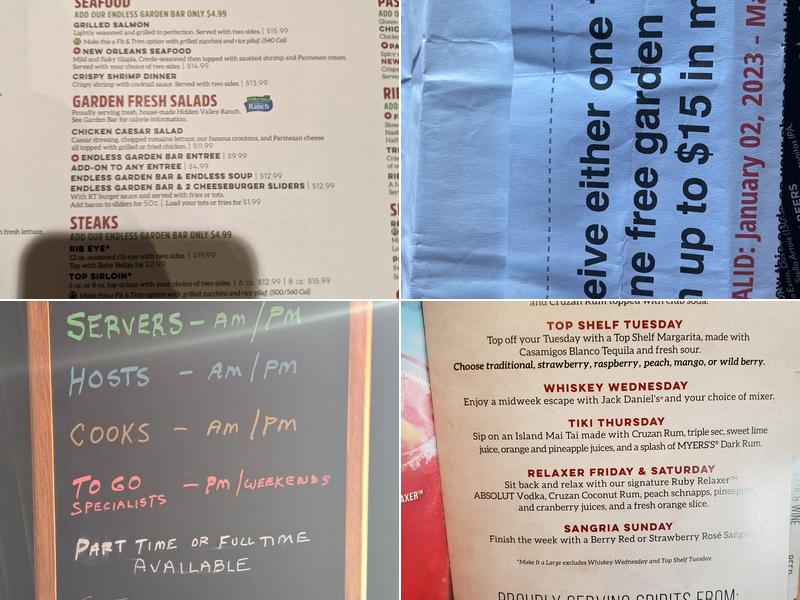 SEAFOOD
ADD OUR ENDLESS GARDEN BAR ONLY $4.99
GRILLED SALMON
Lightly seasoned and grilled to perfection. Served with two sides. | $15.99
Make this a Fit & Trim option with grilled zucchini and rice pilaf. (540 Cal)
NEW ORLEANS SEAFOOD
Mild and flaky tilapia, Creole-seasoned then topped with sautéed shrimp and Parmesan cream.
Served with your choice of two sides. | $14.99
CRISPY SHRIMP DINNER
Crispy shrimp with cocktail sauce. Served with two sides. | $13.99
GARDEN FRESH SALADS
Proudly serving fresh, house-made Hidden Valley Ranch.
See Garden Bar for calorie information.
Ranch
CHICKEN CAESAR SALAD
Caesar dressing, chopped romaine lettuce, our famous croutons, and Parmesan cheese
all topped with grilled or fried chicken. | $11.99
ENDLESS GARDEN BAR ENTREE | $9.99
ADD-ON TO ANY ENTREE | $4.99
ENDLESS GARDEN BAR & ENDLESS SOUP | $12.99
ENDLESS GARDEN BAR & 2 CHEESEBURGER SLIDERS | $12.99
With RT burger sauce and served with fries or tots.
Add bacon to sliders for 50¢ | Load your tots or fries for $1.99
fresh lettuce.
STEAKS
ADD OUR ENDLESS GARDEN BAR ONLY $4.99
RIB EYE*
12 oz. seasoned rib eye with two sides. | $19.99
Top with Baby Bellas for $2.99
TOP SIRLOIN*
6 oz. or 8 oz. top sirloin with your choice of two sides. | 6 oz. $12.99 | 8 oz. $15.99
Make this a Fit & Trim option with grilled zucchini and rice pilaf. (500/560 Cal)
PAS
ADD O
CHIC
NEW
RIB
ADD
eive either one
ne free garden
up to $15 in m
ALID: January 02, 2023 - Ma
EERS
SERVERS - AM/PM
HOSTS - AM/PM
COOKS - AM/PM
TO GO
SPECIALISTS - PM/WEEKENDS
PART TIME OR FULL TIME
AVAILABLE
and Cruzan Rum topped with club soda.
TOP SHELF TUESDAY
Top off your Tuesday with a Top Shelf Margarita, made with
Casamigos Blanco Tequila and fresh sour.
Choose traditional, strawberry, raspberry, peach, mango, or wild berry.
WHISKEY WEDNESDAY
Enjoy a midweek escape with Jack Daniel's® and your choice of mixer.
TIKI THURSDAY
Sip on an Island Mai Tai made with Cruzan Rum, triple sec, sweet lime
juice, orange and pineapple juices, and a splash of MYERS'S® Dark Rum.
RELAXER FRIDAY & SATURDAY
Sit back and relax with our signature Ruby Relaxer™.
ABSOLUT Vodka, Cruzan Coconut Rum, peach schnapps, pineapple
and cranberry juices, and a fresh orange slice.
SANGRIA SUNDAY
Finish the week with a Berry Red or Strawberry Rosé Sangr
*Make It a Large excludes Whiskey Wednesday and Top Shelf Tuesday.
PROUDLY SERVING SPIRITS FROM:
AXER™
& WINE
BEER